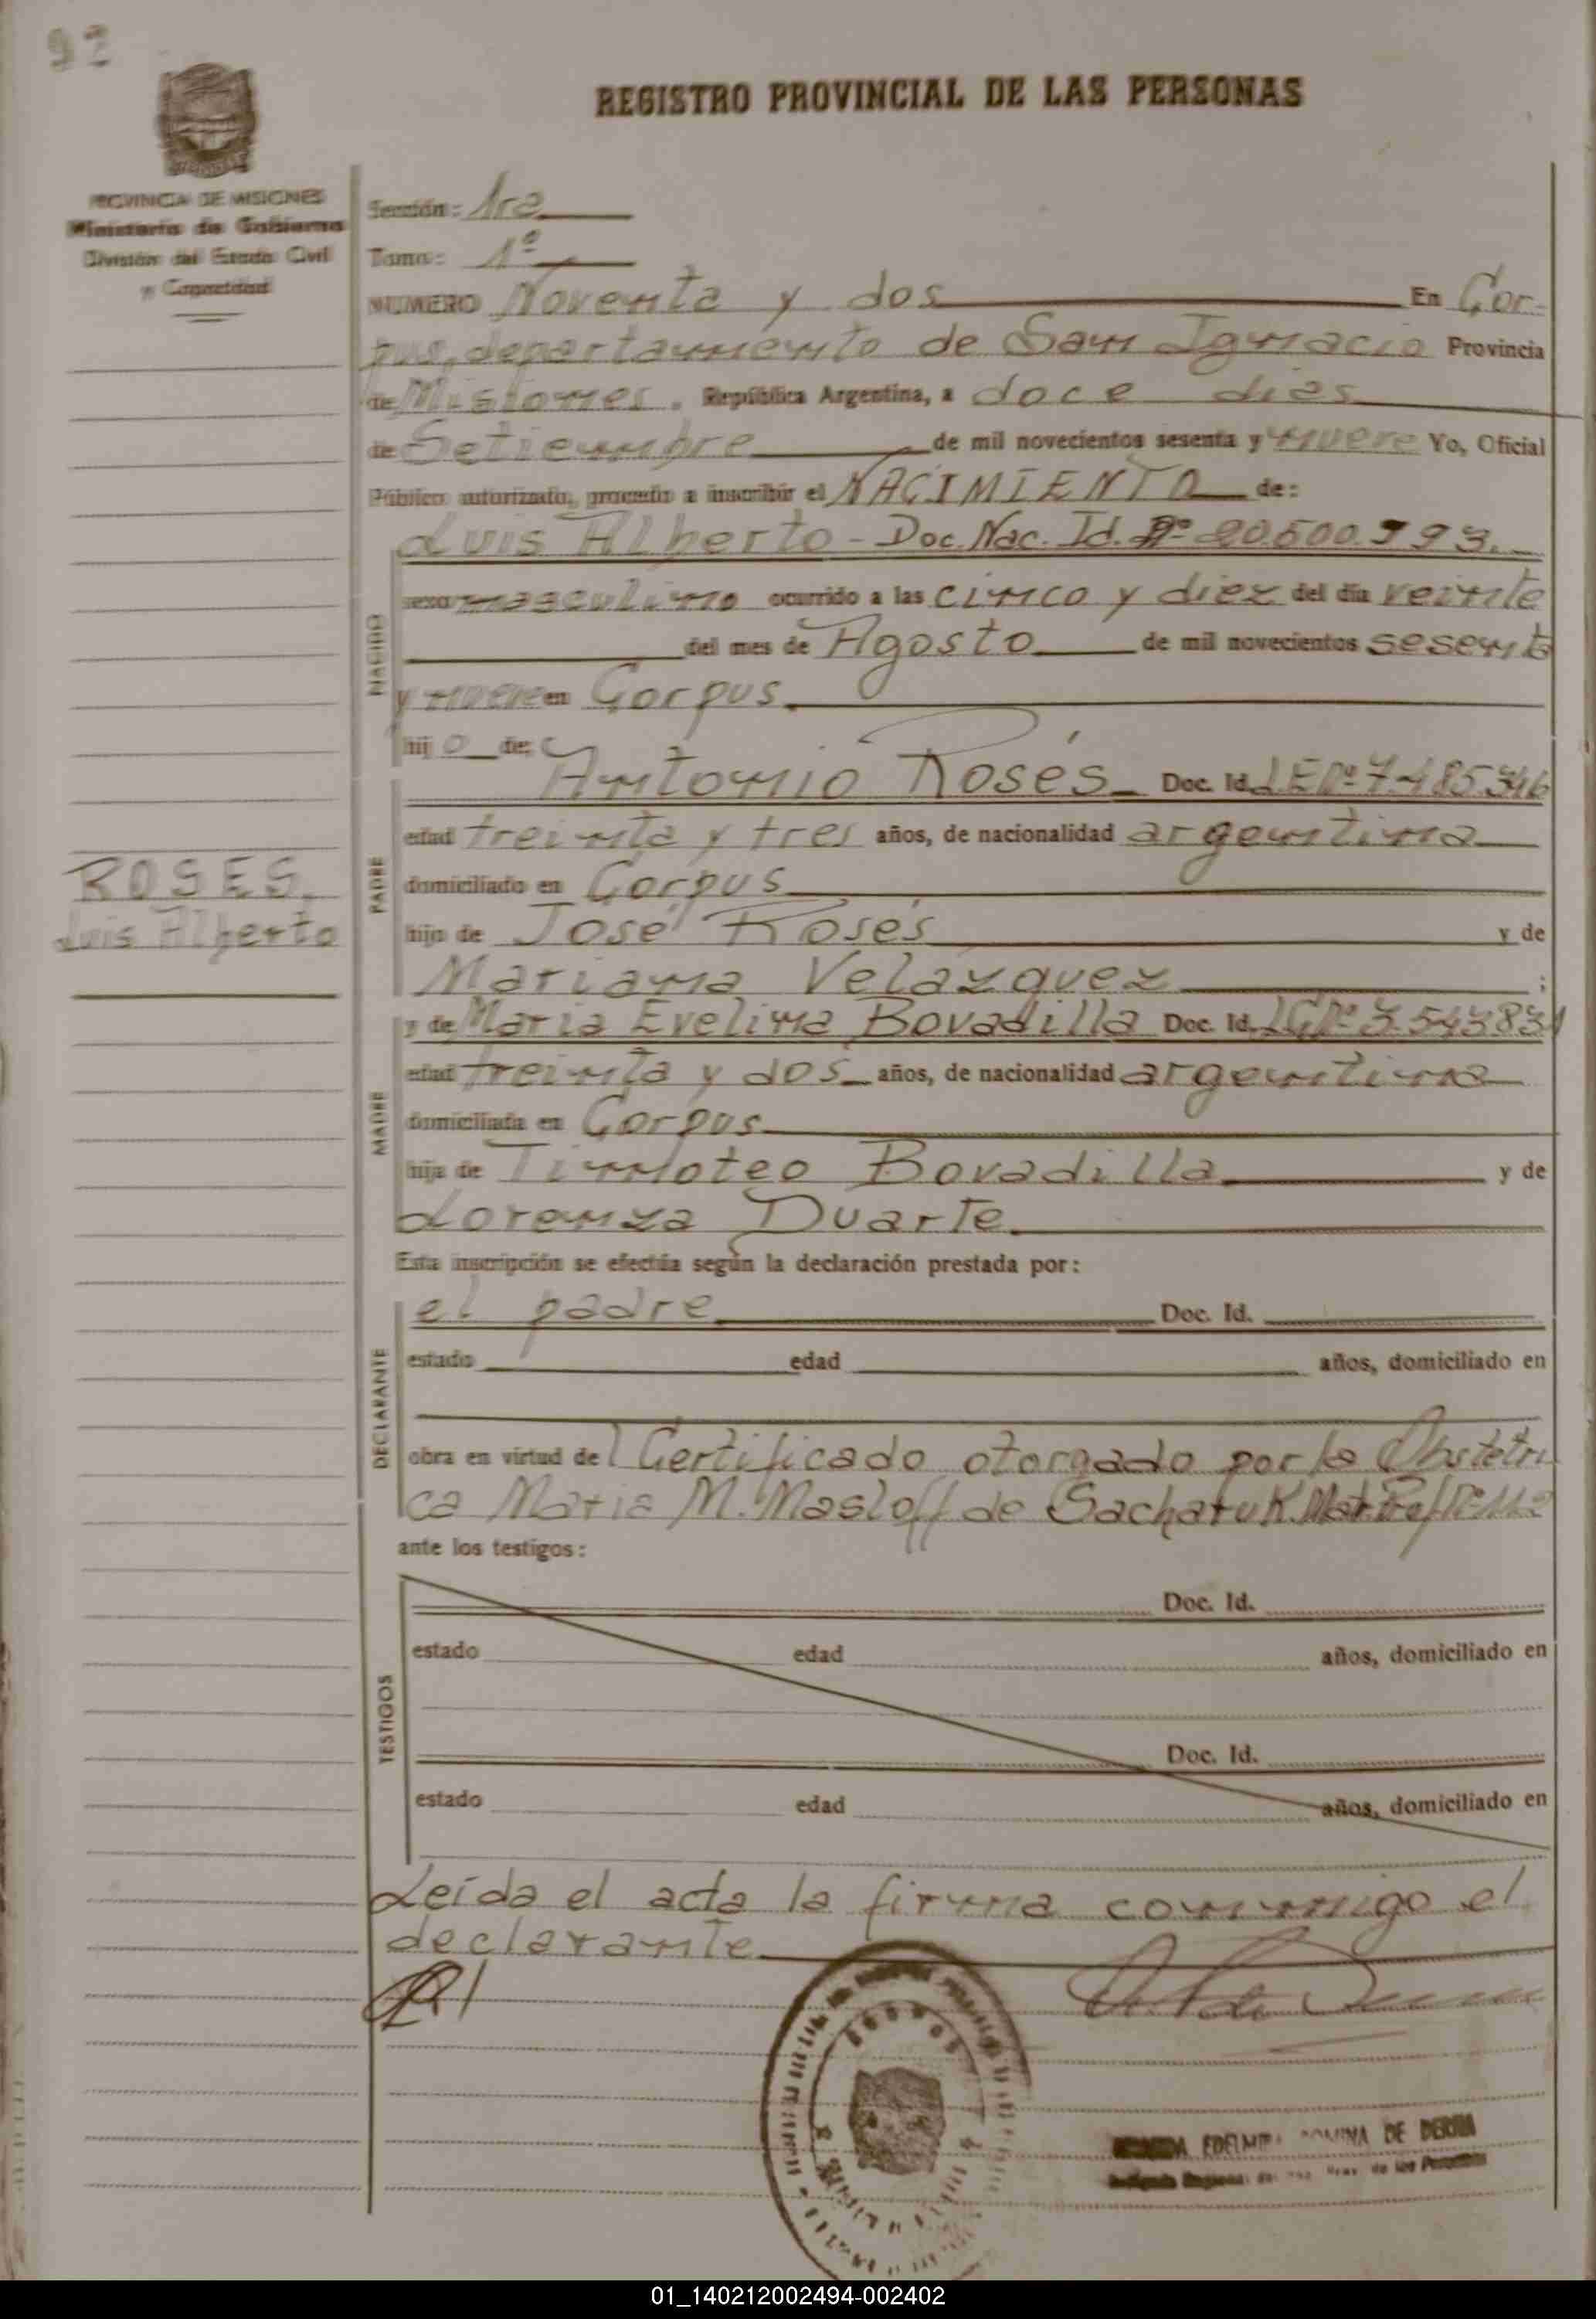 92
REGISTRO PROVINCIAL DE LAS PERSONAS
PROVINCIA DE MISIONES
Ministerio de Gobierno
División del Estado Civil
y Capacidad
Sección: 1ra
Tomo: 1º
NUMERO Noventa y dos En Cor-
pus, departamento de San Ignacio Provincia
de Misiones. República Argentina, a doce dias
de Setiembre de mil novecientos sesenta y nueve Yo, Oficial
Público autorizado, procedo a inscribir el NACIMIENTO de:
Luis Alberto - Doc. Nac. Id. Nº 20.600.993.
NACIDO
sexo masculino ocurrido a las cinco y diez del día veinte
del mes de Agosto de mil novecientos sesenta
y nueve en Corpus.
hijo de:
ROSES,
Luis Alberto
PADRE
Antonio Rosés Doc. Id. LE Nº 7.485.346
edad treinta y tres años, de nacionalidad argentina
domiciliado en Corpus
hijo de José Rosés y de
Mariana Velázquez ;
MADRE
y de Maria Evelina Bovadilla Doc. Id. LC Nº 3.543.831
edad treinta y dos años, de nacionalidad argentina
domiciliada en Corpus
hija de Timoteo Bovadilla y de
Lorenza Duarte
Esta inscripción se efectúa según la declaración prestada por:
DECLARANTE
el padre Doc. Id.
estado edad años, domiciliado en
obra en virtud del Certificado otorgado por la Obstétri
ca Maria M. Masloff de Sacharuk. Mat. Prof Nº
ante los testigos:
TESTIGOS
Doc. Id.
estado edad años, domiciliado en
Doc. Id.
estado edad años, domiciliado en
Leída el acta la firma conmigo el
declarante
DE
de las Personas
01_140212002494-002402